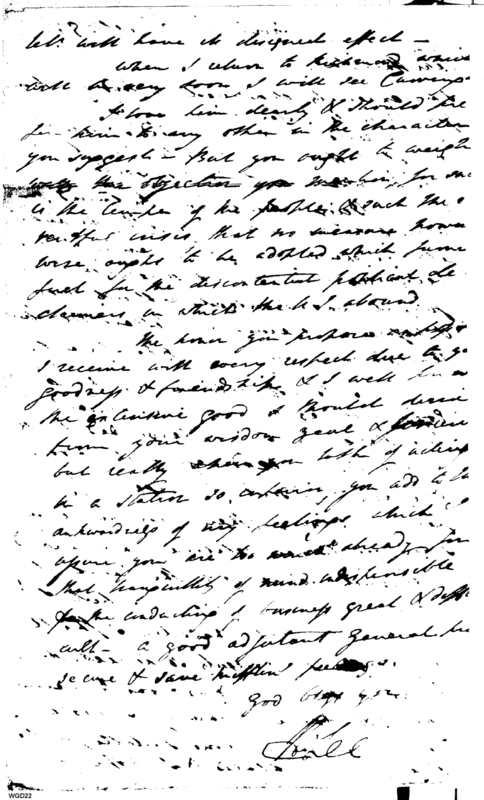 let: will have its designed effect –
When I return to Richmond which
will be very soon I will see Carrington
I love him dearly & should pre
fer him to any other in the character
you suggest – But you ought to weigh
well the objection you mention, for such
is the temper of the people & such the e
ventful crisis that no measure howe
wise ought to be adopted which furni
fuel for the discontented political de
claimers in which the U.S. abound
The honor you propose
I receive with every respect due to yo
goodness & friendship & I well know
the extensive good I should derive
from your wisdom zeal &
but really when you talk of acting
in a station so you add to the
awkwardness of my feelings which I
assure you are too much already for
that tranquillity of mind indispensible
to the conducting of business great & diffi
cult – a good adjutant General
secure & save mifflins feelings.
God bless you
WGD22